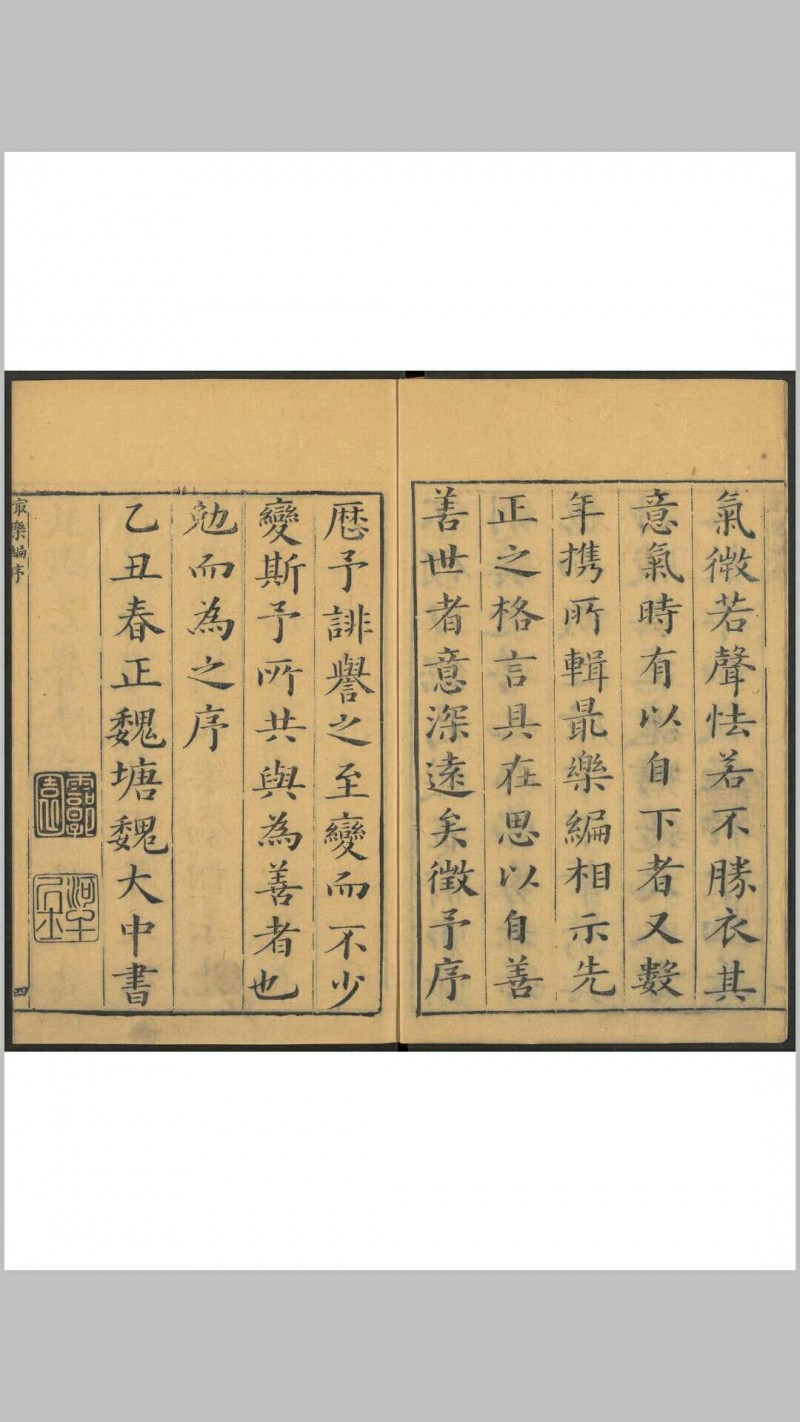 氣微若聲怯若不勝衣其
意氣時有以自下者又數
年携所輯最樂編相示先
正之格言具在思以自善
善世者意深遠矣徵予序
歷予誹譽之至變而不少
變斯予所共與為善者也
勉而為之序
乙丑春正魏塘魏大中書
最樂編序
四